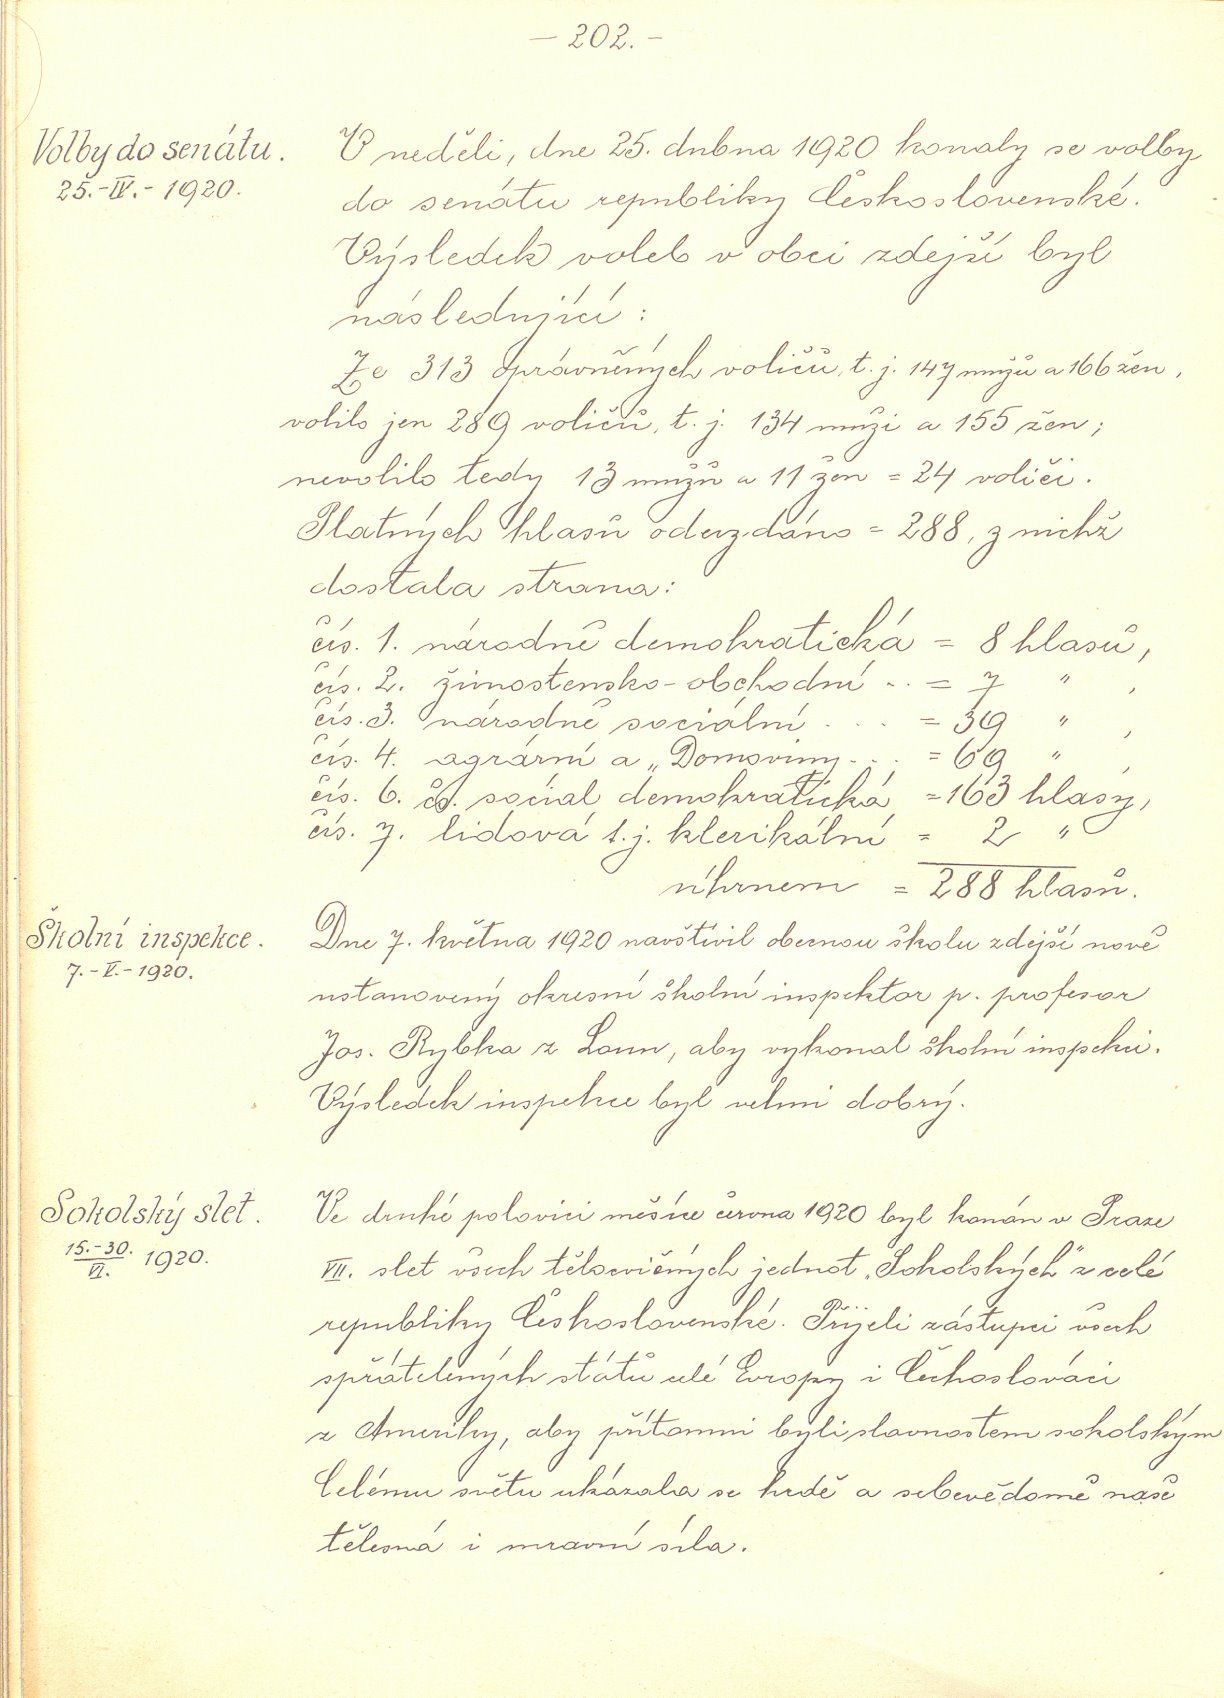 — 202. —
Volby do senátu.
25.-IV.- 1920.
V neděli, dne 25. dubna 1920 konaly se volby
do senátu republiky Československé.
Výsledek voleb v obci zdejší byl
následující:
Ze 313 oprávněných voličů, t. j. 147 mužů a 166 žen,
volilo jen 289 voličů, t. j. 134 muži a 155 žen;
nevolilo tedy 13 mužů a 11 žen = 24 voliči.
Platných hlasů odevzdáno = 288, z nichž
dostala strana:
čís. 1. národně demokratická = 8 hlasů,
čís. 2. živnostensko-obchodní .. = 7 " ,
čís. 3. národně sociální . . . = 39 " ,
čís. 4. agrární a „Domoviny . . . = 69 " ,
čís. 6. čs. social demokratická = 163 hlasy,
čís. 7. lidová t.j. klerikální = 2 "
úhrnem = 288 hlasů.
Školní inspekce.
7.-V.-1920.
Dne 7. května 1920 navštívil obecnou školu zdejší nově
ustanovený okresní školní inspektor p. profesor
Jos. Rybka z Loun, aby vykonal školní inspekci.
Výsledek inspekce byl velmi dobrý.
Sokolský slet.
15.-30./VI. 1920.
Ve druhé polovici měsíce června 1920 byl konán v Praze
VII. slet všech tělocvičených jednot „Sokolských" z celé
republiky Československé. Přijeli zástupci všech
spřátelených států celé Evropy i Čechoslováci
z Ameriky, aby přítomni byli slavnostem sokolským
Celému světu ukázala se hrdě a sebevědomě naše
tělesná i mravní síla.